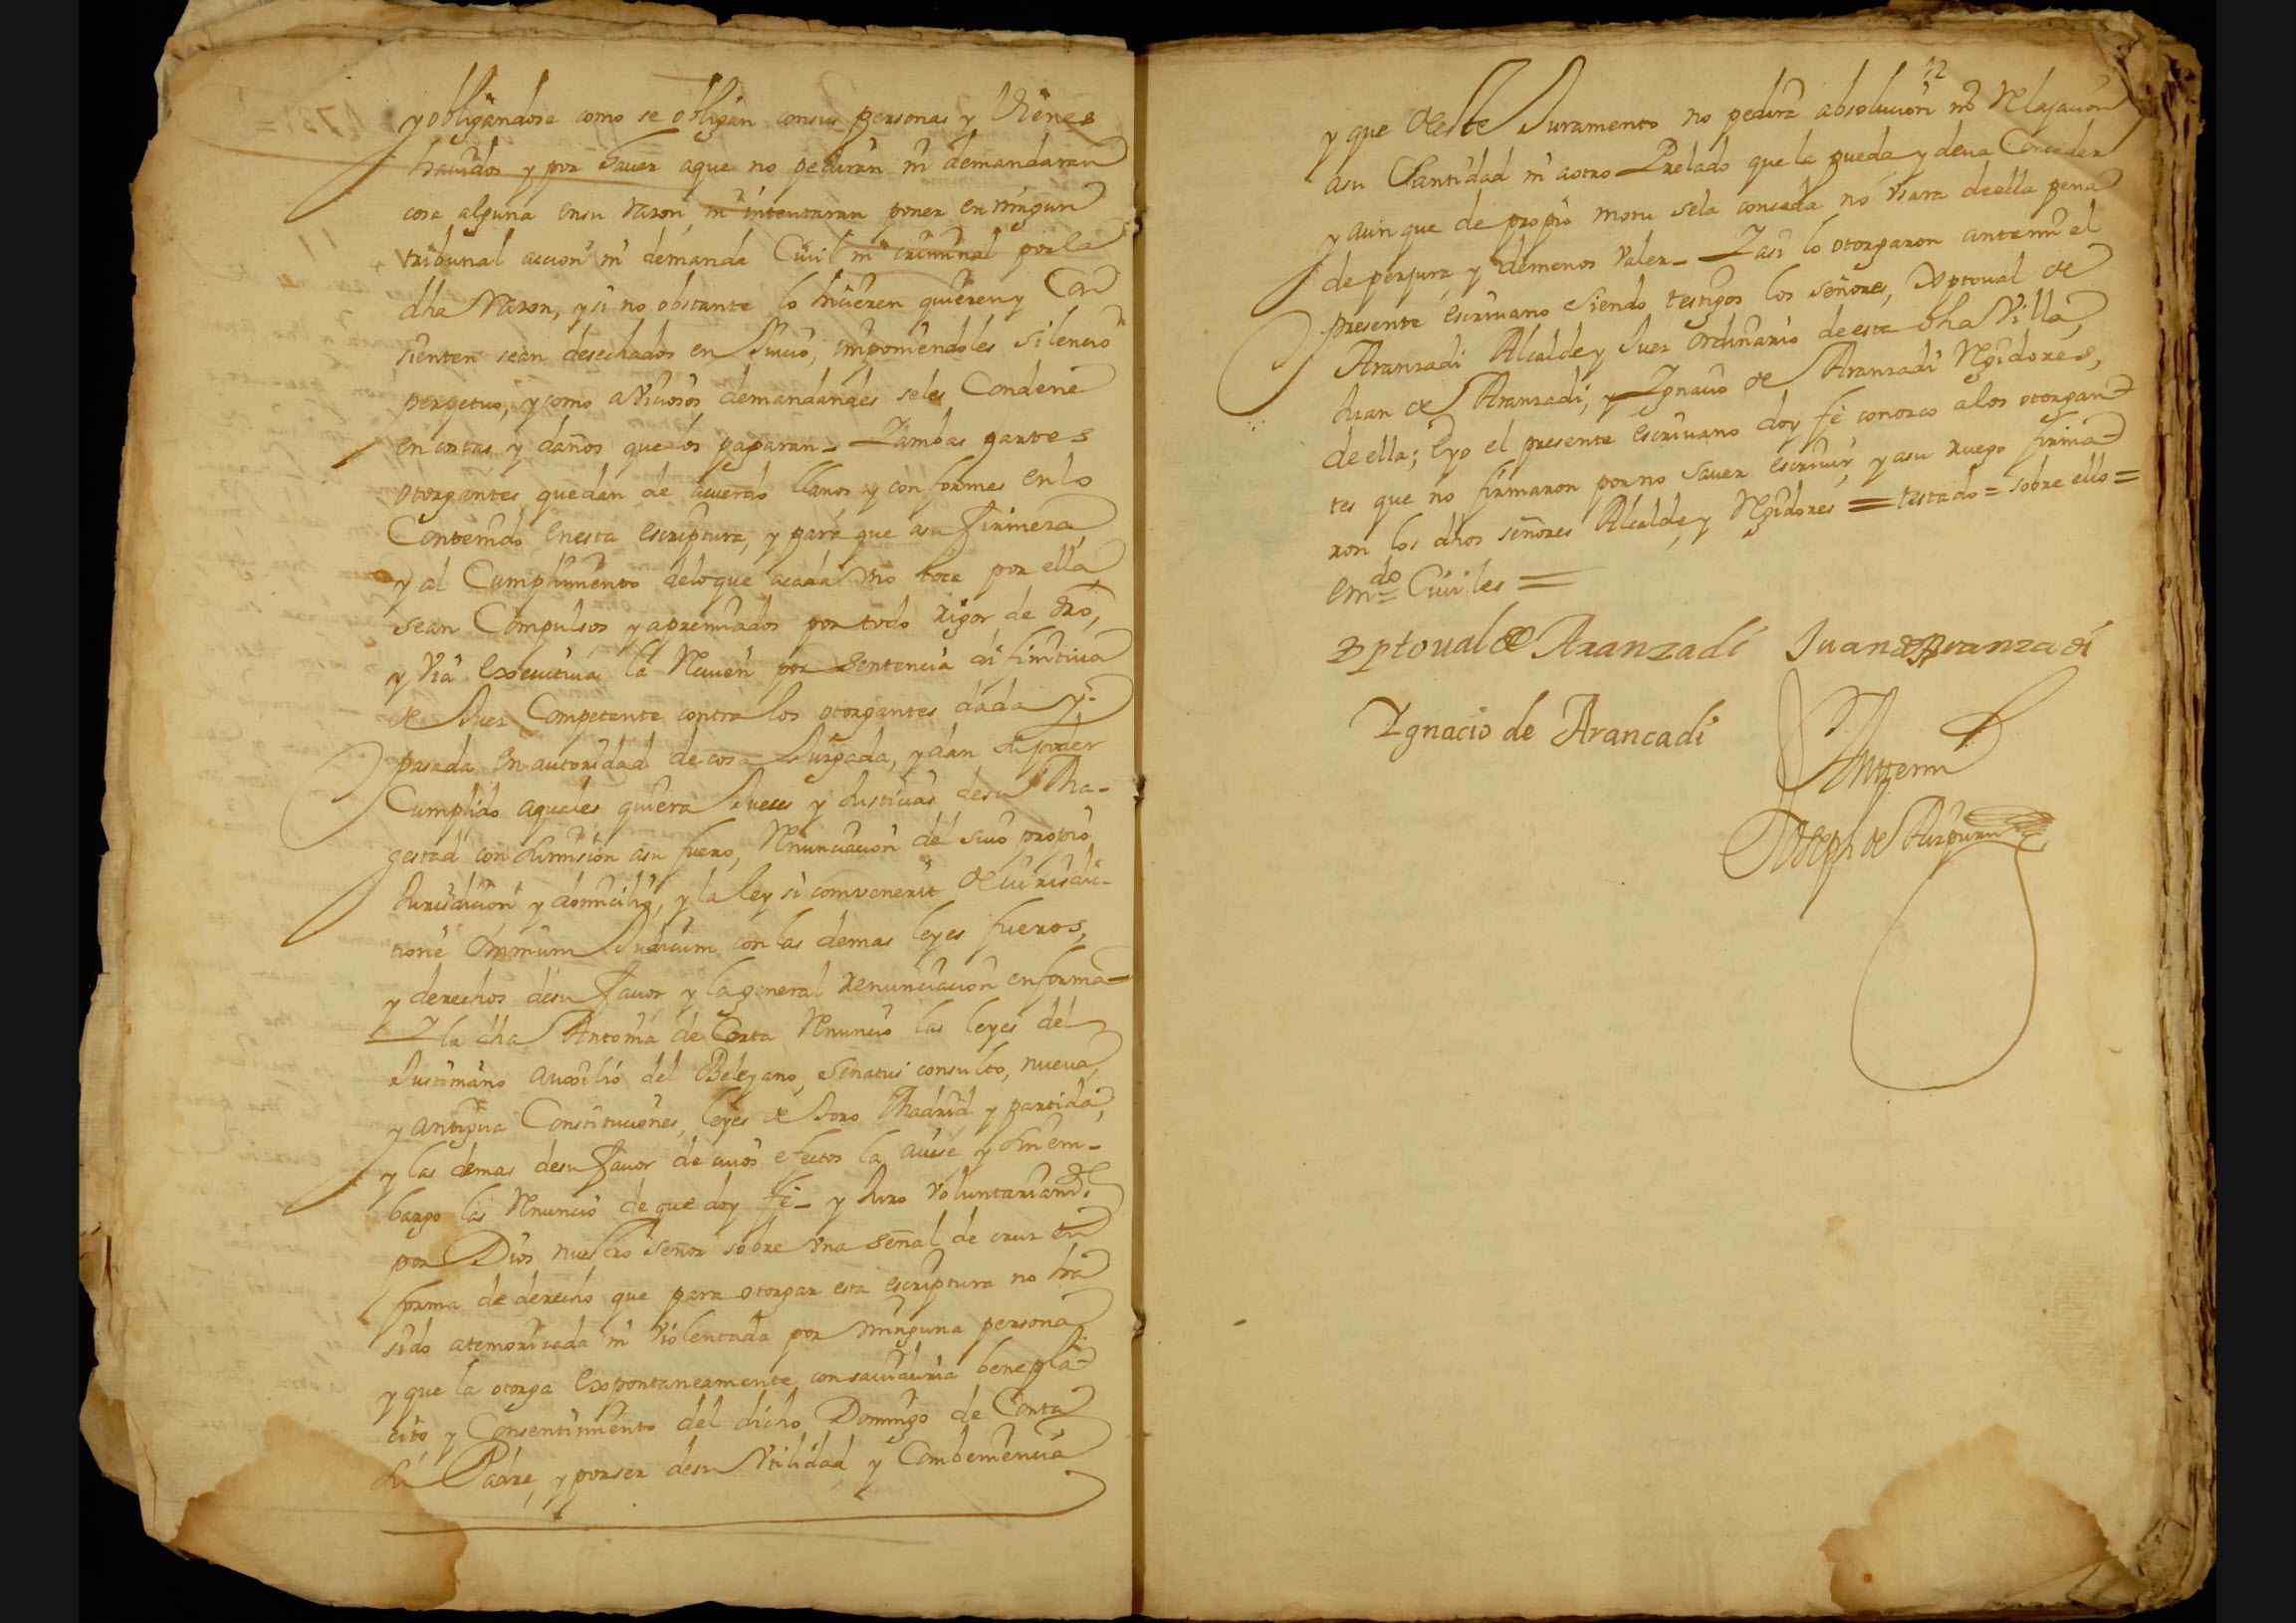 y obligandose como se obligan consus personas y Vienes
hauidos y por hauer aque no pediran ni demandaran
cosa alguna ensu rason, ni intentaran poner en ningun
tribunal accion ni demanda Ciuil ni criminal por la
dha rason, y si no obstante lo hiçieren quieren y Con
sienten sean desechados en Juicio, imponiendoles Silencio
perpetuo, y como aViciosos demandandes seles Condene
en costas y daños que los pagaran - Y ambas partes
otorgantes quedan de acuerdo llanos y conformes en lo
Contenido enesta escriptura, y para que asu firmeza,
y al Cumplimiento deloque acada Vno toca por ella
sean Compulsos y apremiados por todo rigor de dro,
y Via executiua la reciuen por sentencia difinitiua
de Juez Competente contra los otorgantes dada y
pasada en autoridad de cosa Jusgada, y dan su poder
Cumplido aquales quiera Jueces y Justicias desu Ma-
gestad con sumision asu fuero, renunciacion del suio propio
Jurisdicion y domicilio, y la ley si comvenerit de iurisdic-
tione omnium Judicum con las demas leyes fueros,
y derechos desu fauor y la general renunciacion enforma
Y la dha Antonia de Corta renuncio las leyes del
Justiniano auxilio del Beleyano, senatus consulto, nueua,
y antigua Constituciones, leyes de Toro Madrid y partida,
y las demas desu fauor de cuios efectos la auisé y sin em-
bargo las renuncio de que doy fe - y Juro Voluntariamte.
por Dios nuestro Señor sobre Vna señal de cruz en
forma de derecho que para otorgar esta escriptura no ha
sido atemorizada ni Violentada por ninguna persona
y que la otorga expontaneamente consauiduria beneplá
cito y Consentimiento del dicho Domingo de Corta
su Padre, y porser desu Vtilidad y Combeniencia
y que deeste Juramento no pedira absolucion ni relajacion
asu Santidad ni aotro Prelado que la pueda y deua Conceder
y aun que de propio motu sela conceda no Vsara deella pena
de perjura y de menos Valer - Y asi lo otorgaron antemi el
presente escriuano siendo testigos los señores, Xptoual de
Aranzadi Alcalde y Juez ordinario de esta dha Villa,
Juan de Aranzadi, y Ygnacio de Aranzadi rgidores,
de ella; e yo el presente escriuano doy fé conozco alos otorgan
tes que no firmaron por no sauer escriuir, y asu ruego firma
ron los dhos señores Alcalde y rgidores = testado = sobre ello =
emdo = Ciuiles =
Xptoual de Aranzadi Juan de Aranzadi
Ygnacio de Arancadi
Antemi
Joseph de